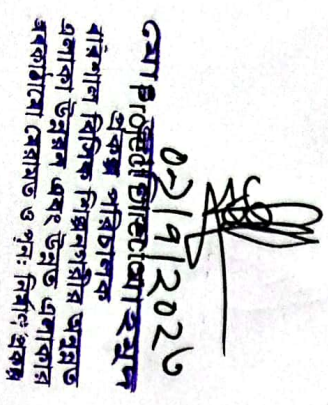 ০২/৭/২০২৬
Project Director
প্রকল্প পরিচালক
বরিশাল বিসিক শিল্পনগরীর অনুন্নত
এলাকা উন্নয়ন এবং উন্নত এলাকার
অবকাঠামো মেরামত ও পুনঃ নির্মাণ প্রকল্প